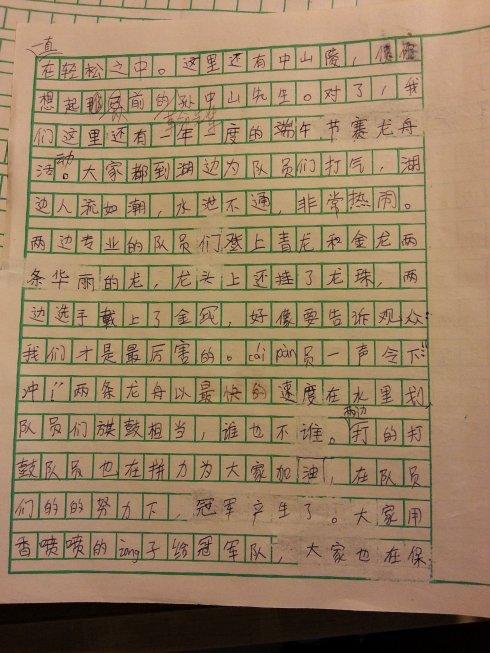 直
在轻松之中。这里还有中山陵，
想起 以前的孙中山先生。对了，我
们这里还有一年一度的端午节赛龙舟
活动。大家都到湖边为队员们打气，湖
边人流如潮，水泄不通，非常热闹。
两边专业的队员们登上青龙和金龙两
条华丽的龙，龙头上还挂了龙珠，两
边选手戴上了金 ，好像要告诉观众：
我们才是最厉害的。cái pàn员一声令下：
冲！”两条龙舟以最快的速度在水里划，
队员们旗鼓相当，谁也不谁。两边打的打
鼓队员也在拼力为大家加油，在队员
们的的努力下，冠军产生了。大家用
香喷喷的zòng子给冠军队，大家也在保